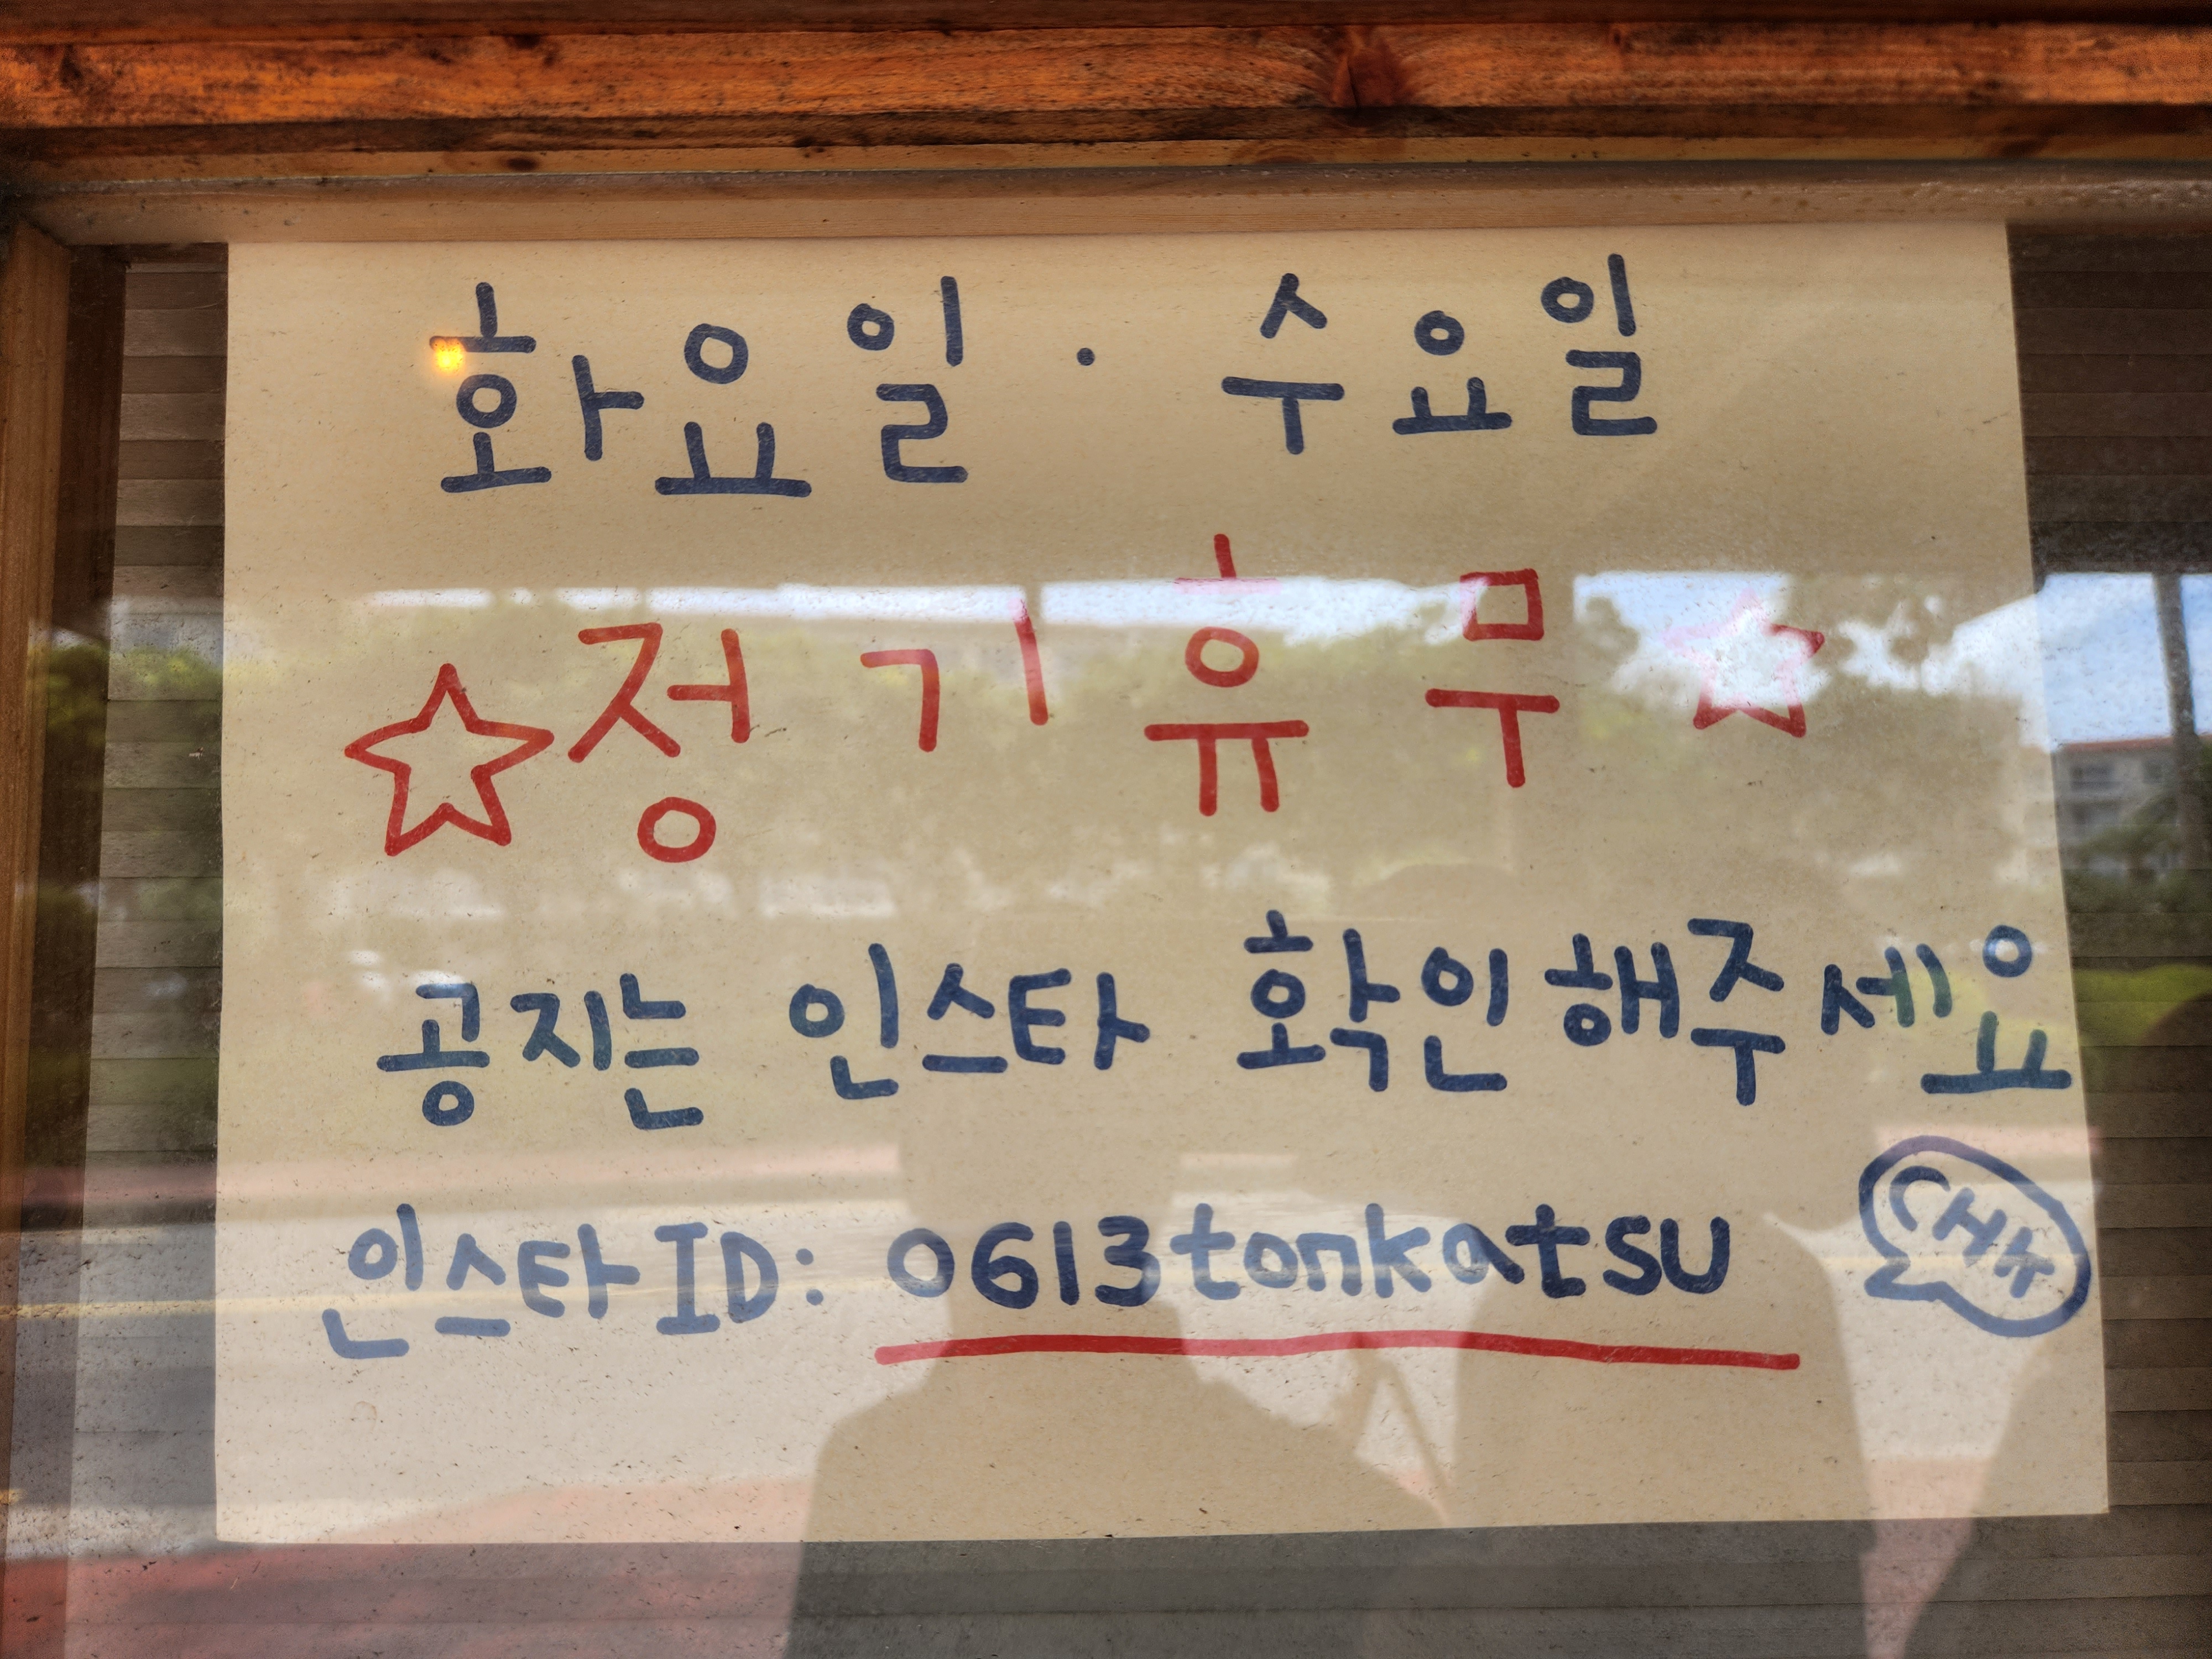 화요일 · 수요일
☆정기휴무☆
공지는 인스타 확인해주세요
인스타ID: 0613tonkatsu
CHK